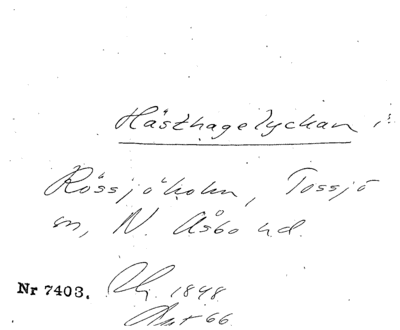 Hästhagelyckan i
Rössjöholm, Tossjö
sn, N. Åsbo hd.
Nr 7403. 1848
66